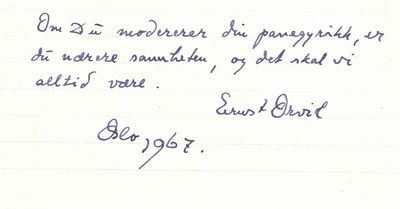 Om Du modererer din panegyrikk, er
du nærere sannheten, og det skal vi
alltid være.
Ernst Orvil
Oslo, 1967.